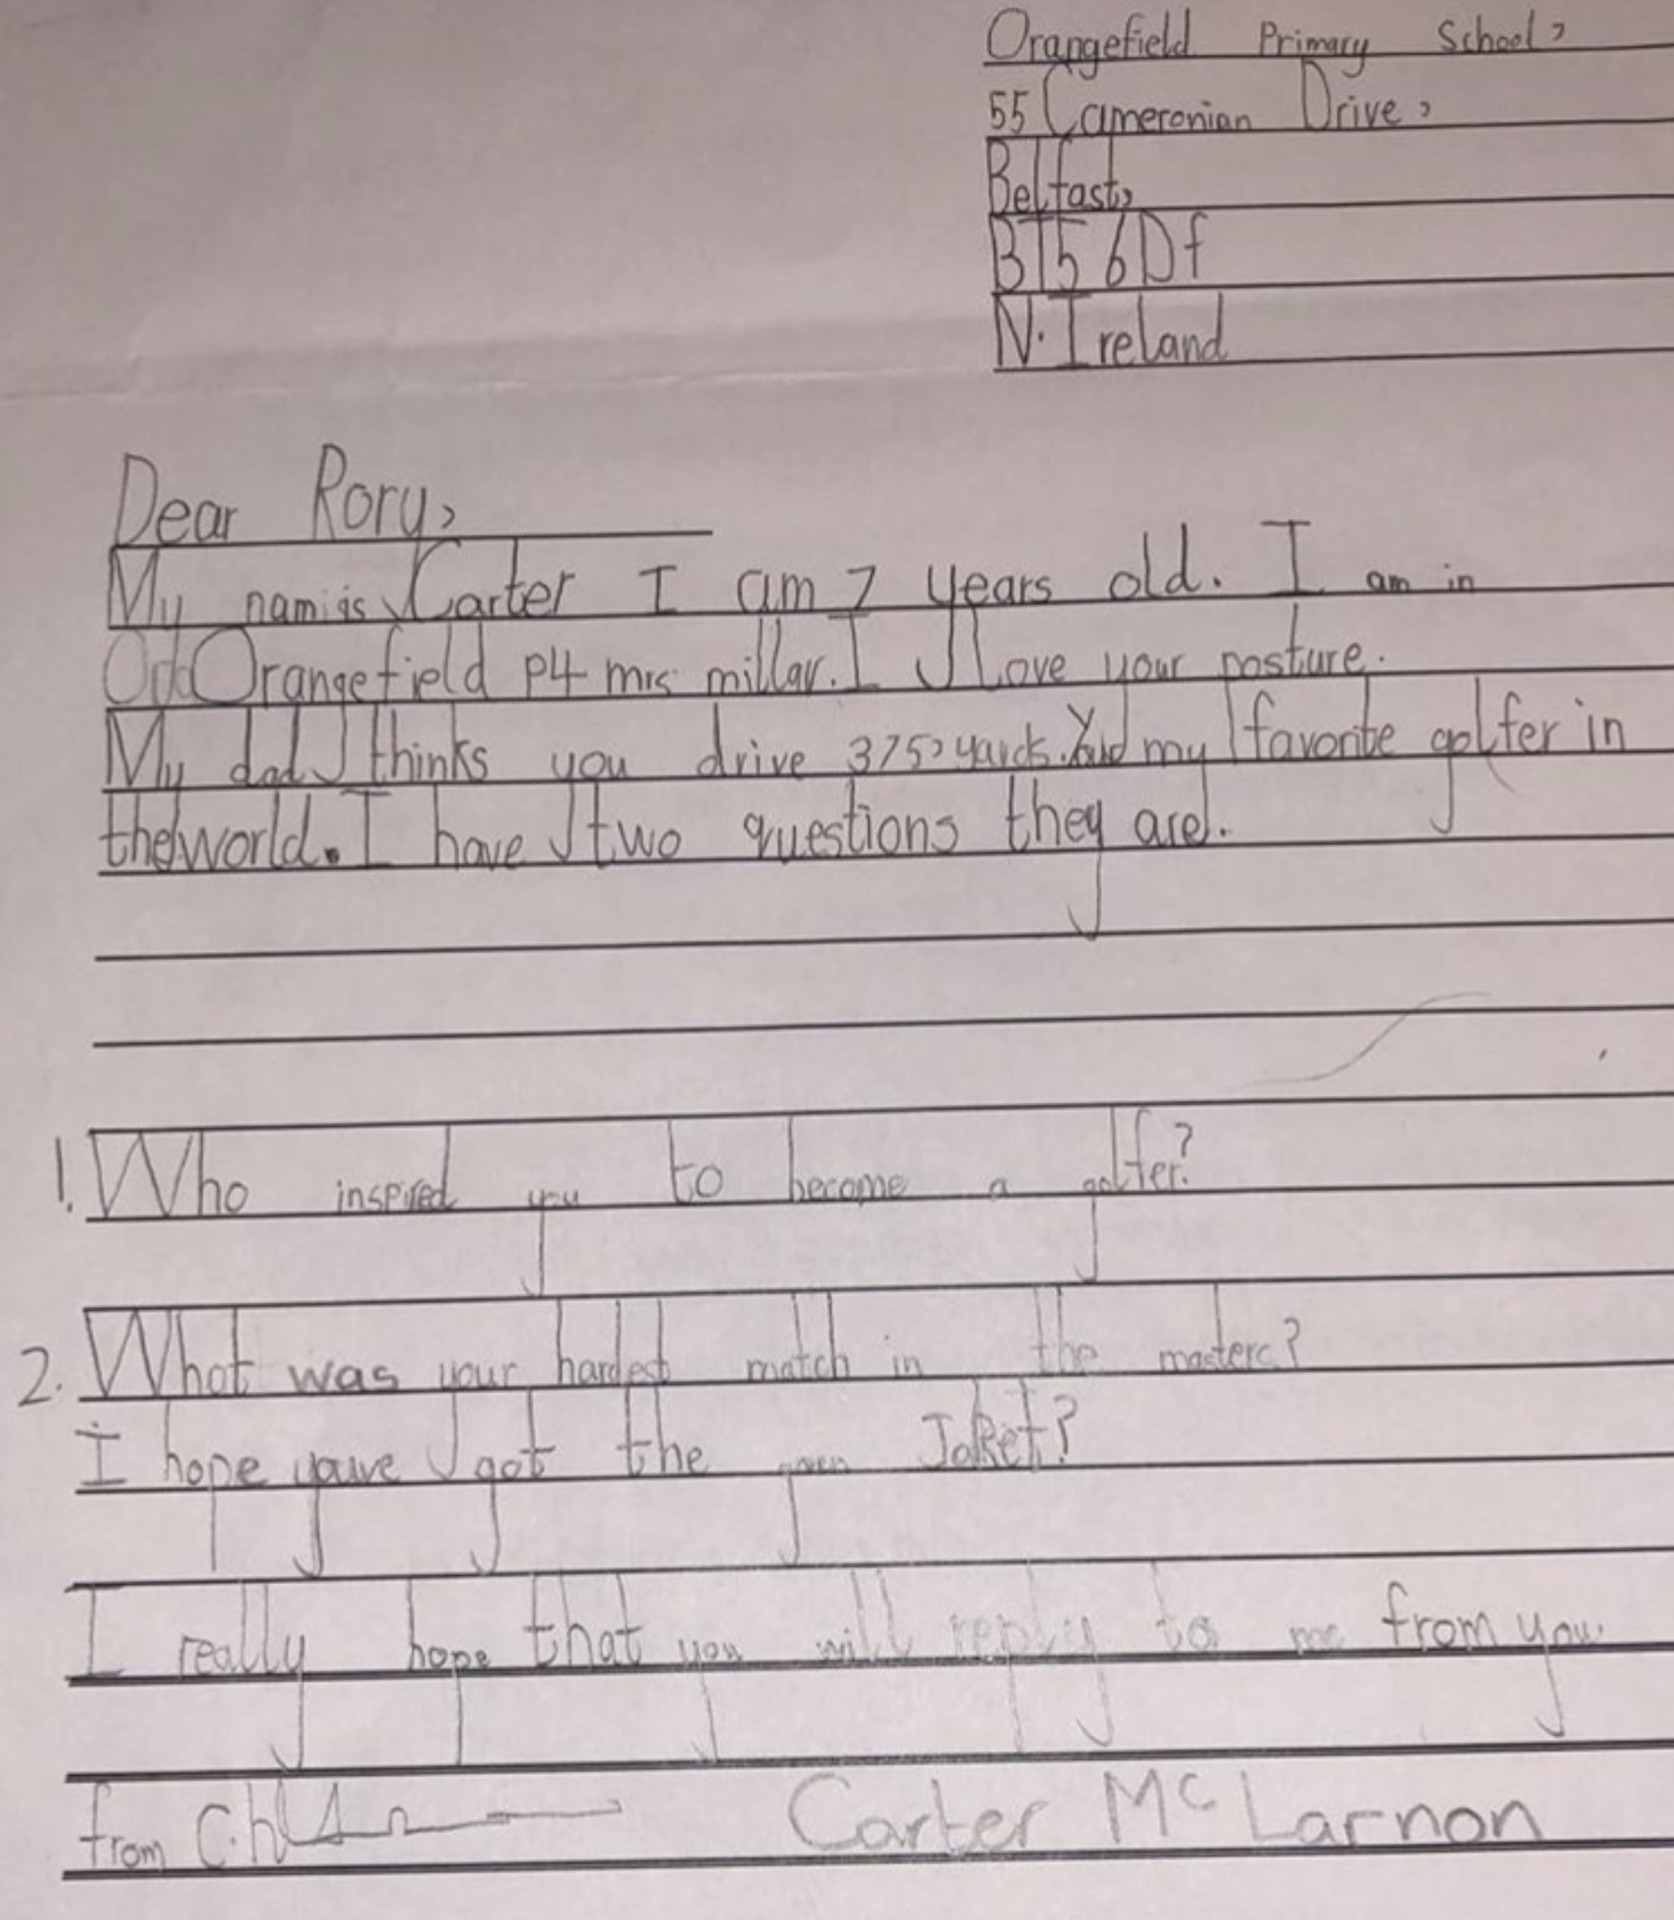 Orangefield Primary School,
55 Cameronian Drive,
Belfast,
BT5 6Df
N. Ireland
Dear Rory,
My nam is Carter I am 7 years old. I am in
Orangefield P4 mrs millar. I Love your posture.
My dad thinks you drive 375, yards. my favorite golfer in
the world. I have two questions they are.
1. Who inspired you to become a golfer?
2. What was your hardest match in the masters?
I hope youve got the green Jaket?
I really hope that you will reply to me from you.
from Carter Mc Larnon